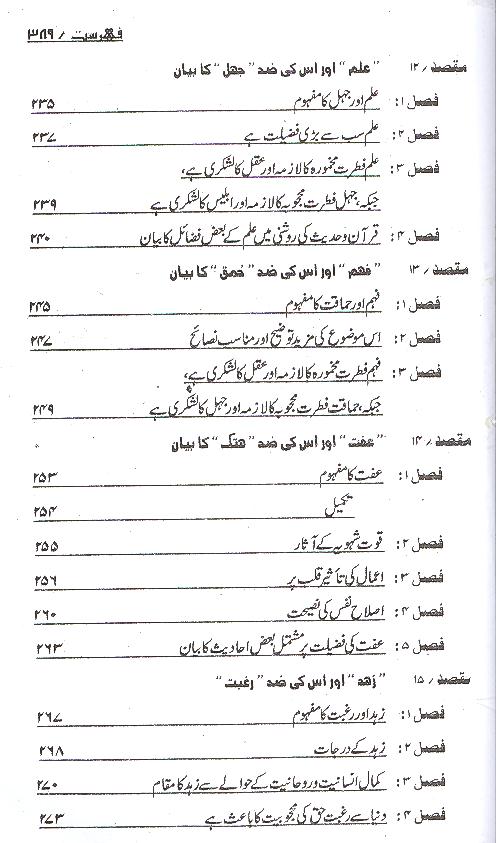 فہرست / ۳۸۹
مقصد / ۱۲ "علم" اور اس کی ضد "جہل" کا بیان
فصل ۱: علم اور جہل کا مفہوم ۲۳۵
فصل ۲: علم سب سے بڑی فضیلت ہے ۲۳۷
فصل ۳: علم فطرت مخمورہ کا لازمہ اور عقل کا لشکری ہے،
جبکہ، جہل فطرت محجوبہ کا لازمہ اور ابلیس کا لشکری ہے ۲۳۹
فصل ۴: قرآن وحدیث کی روشنی میں علم کے بعض فضائل کا بیان ۲۴۰
مقصد / ۱۳ "فہم" اور اس کی ضد "حُمق" کا بیان
فصل ۱: فہم اور حماقت کا مفہوم ۲۴۵
فصل ۲: اس موضوع کی مزید توضیح اور مناسب نصائح ۲۴۷
فصل ۳: فہم فطرت مخمورہ کا لازمہ اور عقل کا لشکری ہے،
جبکہ، حماقت فطرت محجوبہ کا لازمہ اور جہل کا لشکری ہے ۲۴۹
مقصد / ۱۴ "عفت" اور اس کی ضد "ھتک" کا بیان
فصل ۱: عفت کا مفہوم ۲۵۳
تکمیل ۲۵۴
فصل ۲: قوت شہویہ کے آثار ۲۵۵
فصل ۳: اعمال کی تأثیر قلب پر ۲۵۶
فصل ۴: اصلاح نفس کی نصیحت ۲۶۰
فصل ۵: عفت کی فضیلت پر مشتمل بعض احادیث کا بیان ۲۶۳
مقصد / ۱۵ "زھد" اور اس کی ضد "رغبت"
فصل ۱: زہد اور رغبت کا مفہوم ۲۶۷
فصل ۲: زہد کے درجات ۲۶۸
فصل ۳: کمال انسانیت و روحانیت کے حوالے سے زہد کا مقام ۲۷۰
فصل ۴: دنیا سے رغبت حق کی محجوبیت کا باعث ہے ۲۷۳